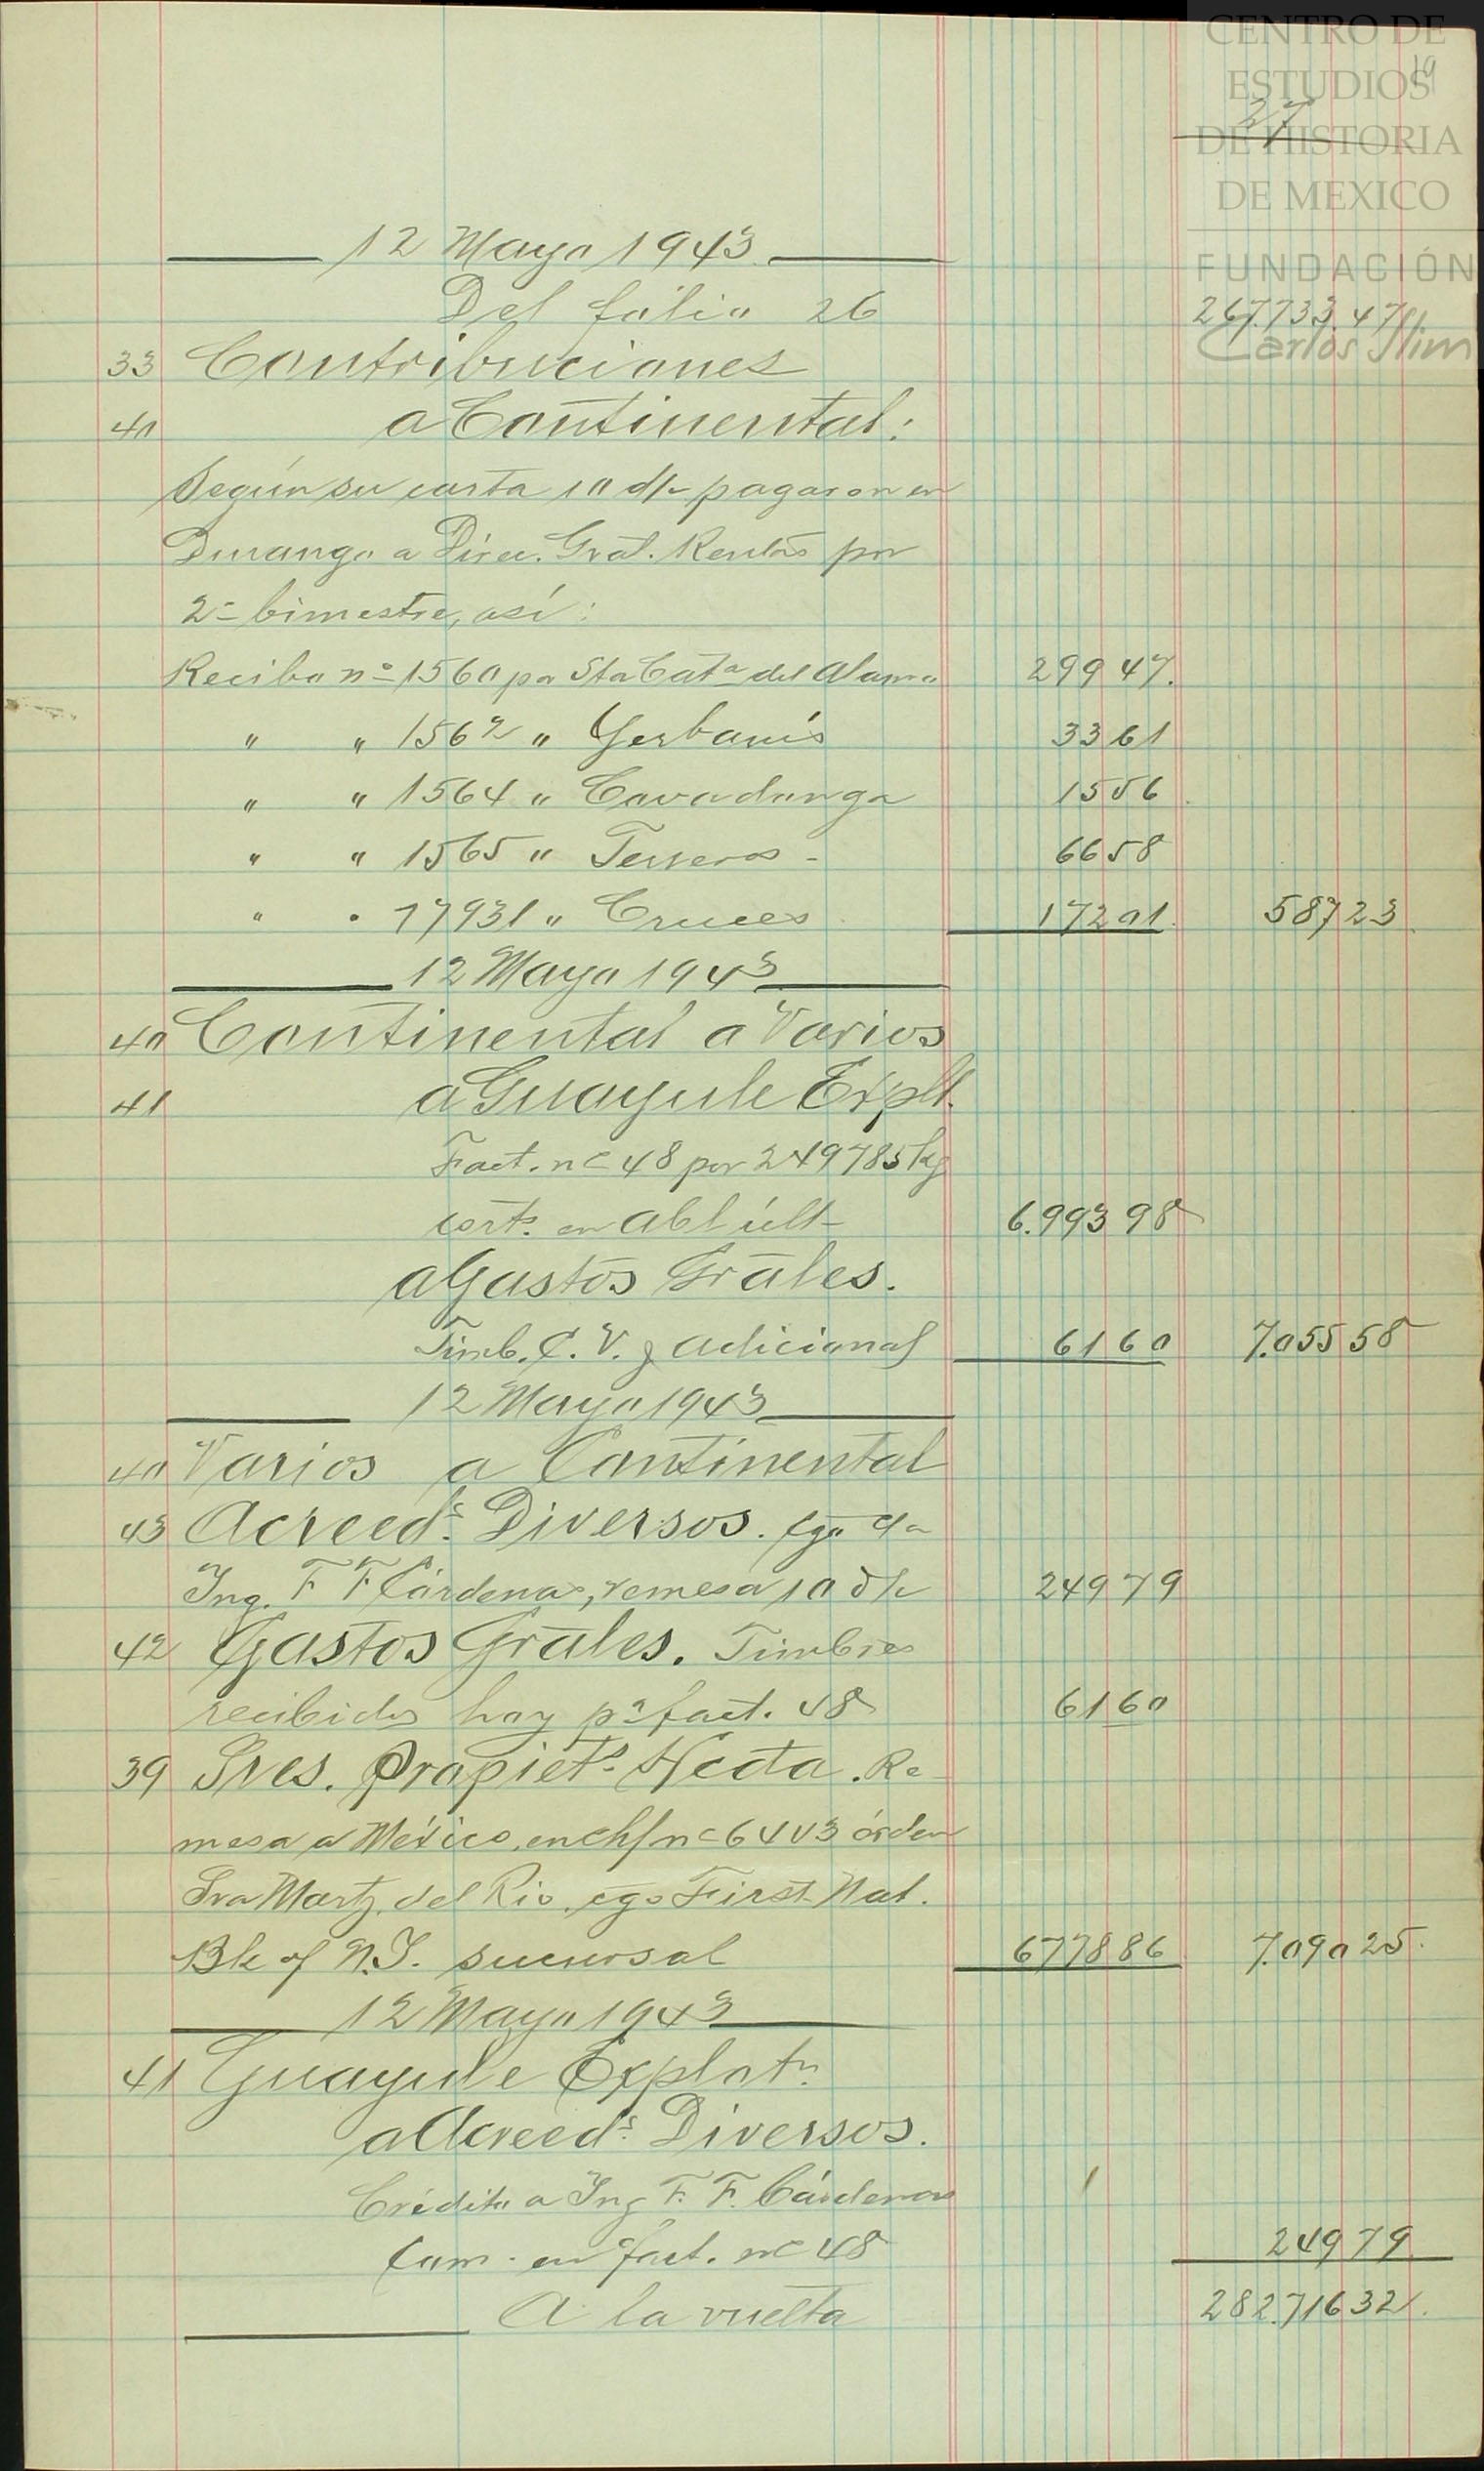 CENTRO DE
ESTUDIOS
DE HISTORIA
DE MEXICO
FUNDACIÓN
Carlos Slim
19
27
12 Mayo 1943
Del fólio 26 267.733.47
33 Contribuciones
40 a Continental:
Según su carta 10 d/ pagaron en
Durango a Direc. Gral. Rentas por
2º bimestre, así:
Recibo nº 1560 por Sta Catª del Alamo 299 47.
" " 1562 " Yerbanís 33 61
" " 1564 " Covadonga 15 56
" " 1565 " Terreros - 66 58
" " 17931 " Cruces 172 01 587 23
12 Mayo 1943
40 Continental a Varios
41 a Guayule Explt.
Fact. nº 48 por 249785 kg
cort. en Abl últ-
6.993 98
a Gastos Gráles.
Timb. C. V. y adicional 61 60 7.055 58
12 Mayo 1943
40 Varios a Continental
43 Acreeds. Diversos. cgo
Ing. F. F. Cárdenas, remesa 10 249 79
42 Gastos Gráles. Timbres
recibidos hoy pª fact. 48 61 60
39 Sres. Propiets. Hcda. Re-
mesa a México, en ch/ nº 6403 órden
Sra Martz. del Rio, cgo First Nat.
Bk of N.Y. sucursal 6778 86 7.090 25.
12 Mayo 1943
41 Guayule Explotn.
a Acreeds. Diversos.
Crédito a Ing F. F. Cárdenas
Com. en fact. nº 48 249 79
A la vuelta 282.716 32